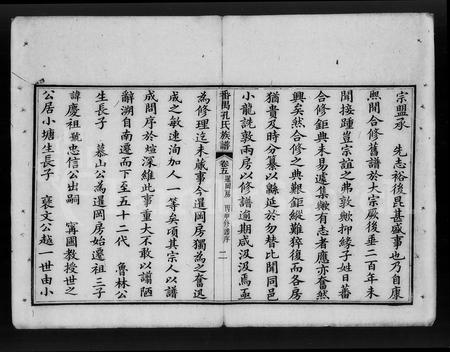 宗盟承　先志裕後昆甚盛事也乃自康
熙間合修舊譜於大宗厥後垂二百年未
聞接踵豈宗誼之弗敦歟抑緣子姓日蕃
合修鉅典未易遽集歟有志者應亦奮然
興矣然合修之典艱鉅縱難猝復而各房
猶貴及時分纂以縣延於勿替比聞同邑
小龍詵敦兩房以修譜逾期咸汲汲焉亟
番禺孔氏族譜
卷五
暹岡房
序
二
為修理迄未蕆事今暹岡房獨為之奮迅
成之敏速洵加人一等矣頃其宗人以譜
成問序於爚深維此事重大不敢以謭陋
辭溯自南遷而下至五十二代　魯林公
生長子　慕山公為暹岡房始遷祖三子
諱慶祖號忠信公出嗣　甯國教授世之
公居小塘生長子　襄文公越一世由小